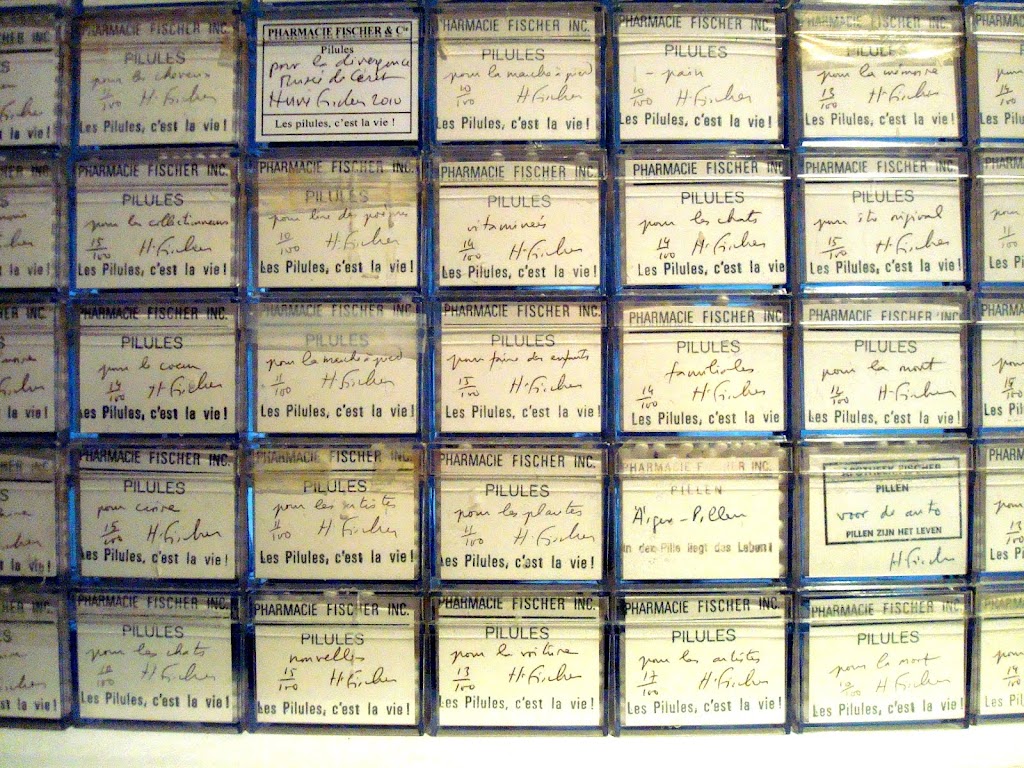 PHARMACIE FISCHER INC.
PILULES
pour les cheveux
11/100 H. Fischer
Les Pilules, c'est la vie !
PHARMACIE FISCHER & Cie
Pilules
pour la divergence
Musée de Céret
Hervé Fischer 2010
Les pilules, c'est la vie !
PHARMACIE FISCHER INC.
PILULES
pour la marche à pied
10/100 H. Fischer
Les Pilules, c'est la vie !
PHARMACIE FISCHER INC.
PILULES
- pain
10/100 H. Fischer
Les Pilules, c'est la vie !
PHARMACIE FISCHER INC.
PILULES
pour la mémoire
13/100 H. Fischer
Les Pilules, c'est la vie !
PHARMACIE FISCHER INC.
PILULES
pour les collectionneurs
15/100 H. Fischer
Les Pilules, c'est la vie !
PHARMACIE FISCHER INC.
PILULES
pour lire des poèmes
10/100 H. Fischer
Les Pilules, c'est la vie !
PHARMACIE FISCHER INC.
PILULES
vitaminées
14/100 H. Fischer
Les Pilules, c'est la vie !
PHARMACIE FISCHER INC.
PILULES
pour les chats
14/100 H. Fischer
Les Pilules, c'est la vie
PHARMACIE FISCHER INC.
PILULES
pour être original
15/100 H. Fischer
Les Pilules, c'est la vie !
PHARMACIE FISCHER INC.
PILULES
pour le coeur
14/100 H. Fischer
Les Pilules, c'est la vie !
PHARMACIE FISCHER INC.
PILULES
pour la marche à pied
11/100 H. Fischer
Les Pilules, c'est la vie !
PHARMACIE FISCHER INC.
PILULES
pour faire des enfants
15/100 H. Fischer
Les Pilules, c'est la vie !
PHARMACIE FISCHER INC.
PILULES
familiales
14/100 H. Fischer
Les Pilules, c'est la vie
PHARMACIE FISCHER INC.
PILULES
pour la mort
12/100 H. Fischer
Les Pilules, c'est la vie !
PHARMACIE FISCHER INC.
PILULES
pour cuire
15/100 H. Fischer
Les Pilules, c'est la vie !
PHARMACIE FISCHER INC.
PILULES
pour les artistes
11/100 H. Fischer
Les Pilules, c'est la vie !
PHARMACIE FISCHER INC.
PILULES
pour les plantes
11/100 H. Fischer
Les Pilules, c'est la vie !
PHARMACIE FISCHER INC.
PILLEN
Ärger-Pillen
In der Pille liegt das Leben!
APOTHEEK FISCHER
PILLEN
voor de auto
PILLEN ZIJN HET LEVEN
H. Fischer
PHARMACIE FISCHER INC.
PILULES
pour les chats
H. Fischer
Les Pilules, c'est la vie !
PHARMACIE FISCHER INC.
PILULES
nouvelles
15/100 H. Fischer
Les Pilules, c'est la vie !
PHARMACIE FISCHER INC.
PILULES
pour la voiture
13/100 H. Fischer
Les Pilules, c'est la vie !
PHARMACIE FISCHER INC.
PILULES
pour les artistes
17/100 H. Fischer
Les Pilules, c'est la vie !
PHARMACIE FISCHER INC.
PILULES
pour la mort
10/100 H. Fischer
Les Pilules, c'est la vie !